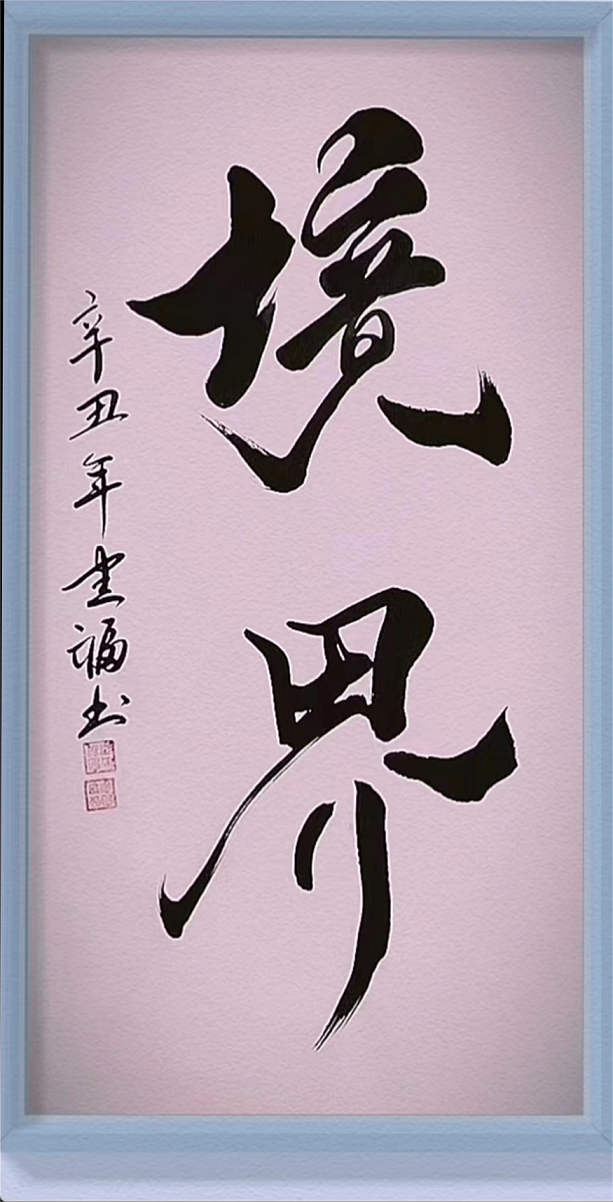 境界
辛丑年宪福书